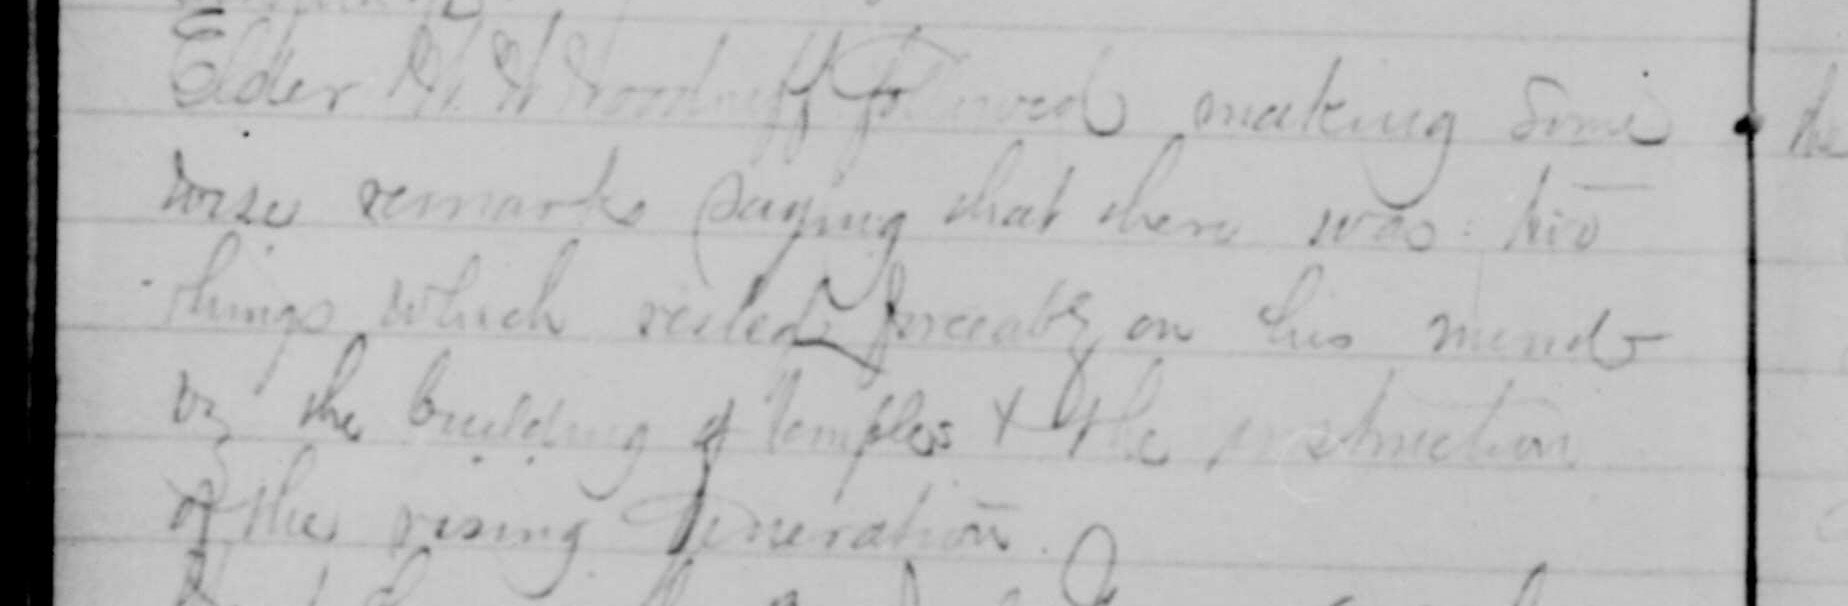 Elder W. Woodruff followed making Some
wise remarks saying that there was two
things which rested forceably on his mind
viz the building of temples & the instruction
of the rising Generation.